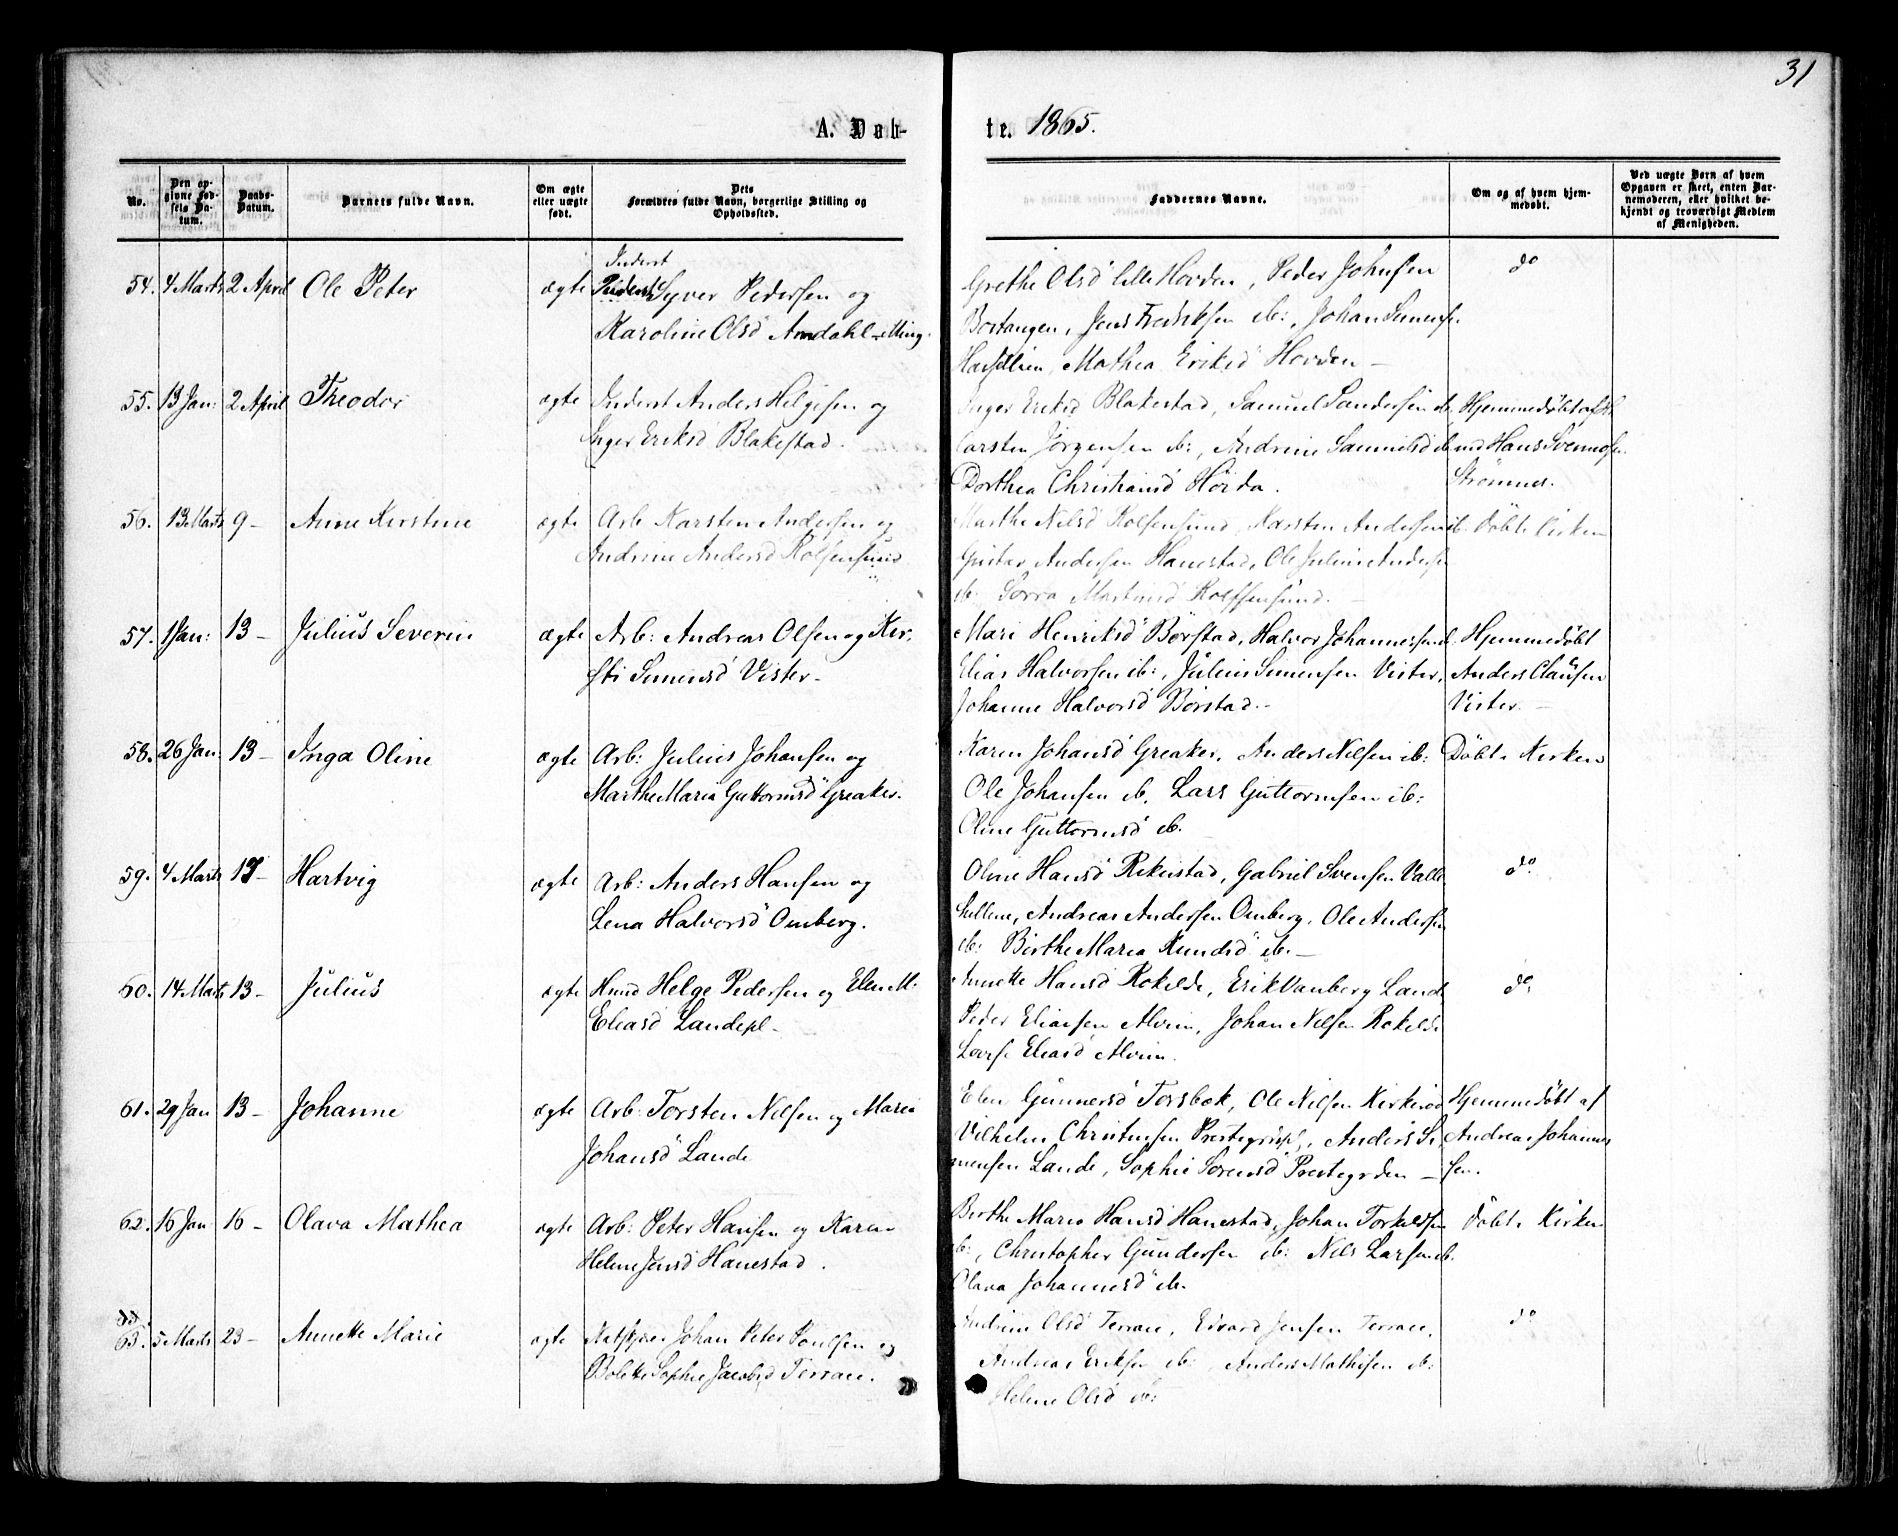 31
A. Døb-
te. 1865.
No.
Den op-
givne Fød-
sels Da-
tum.
Daabs-
Datum.
Barnets fulde Navn.
Om ægte
eller uægte
født.
Dets
Forældres fulde Navn, borgerlige Stilling og
Opholdssted.
Faddernes Navne.
Om og af hvem hjem-
medøbt.
Ved uægte Børn af hvem
Opgaven er skeet, enten Bar-
nemoderen, eller hvilket be-
kjendt og troværdigt Medlem
af Menigheden.
54. 4 Marts 2 April Ole Peter ægte Inderst
Syver Pedersen og
Karoline Olsd
Grethe Olsd lille Hovden, Peder Johnsen
Bostangen, Jens Fredriksen ib:, Johan Simensen
Mathea Eriksd Hovden –
do
55. 13 Jan: 2 April Theodor ægte Inderst Anders Helgesen og
Inger Eriksd Blakestad.
Inger Eriksd Blakestad, Samuel Sandersen ib.
Carsten Jørgensen ib:, Andrine Samuelsd ib
Dorthea Christiansd Hørda.
Hjemmedøbt af
Hans Svendsen
Strømnes.
56. 13 Marts 9 – Anne Kirstine ægte Arb. Karsten Andersen og
Andrine Andersd Rolfsensund
Marthe Nilsd Rolfsensund, Karsten Andersen ib.
Gustav Andersen Hanestad, Ole Julius Andersen
ib. Martinsd Rolfsensund. –
døbt i Kirken
57. 1 Jan: 13 – Julius Severin ægte Arb: Andreas Olsen og Ker-
sti Simensd Vister –
Mari Henriksd Børstad, Halvor Johannessen ib.
Elias Halvorsen ib:, Julius Simensen Vister,
Johanne Halvorsd Børstad. –
Hjemmedøbt
Anders Clausen
Vister. –
58. 26 Jan: 13 – Inga Oline ægte Arb: Julius Johansen og
Marthe Maria Guttormsd Greaker.
Karen Johansd Greaker, Anders Nilsen ib:
Ole Johansen ib, Lars Guttormsen ib:
Oline Guttormsd ib. –
Døbt i Kirken
59. 4 Marts 17 – Hartvig ægte Arb: Anders Hansen og
Lena Halvorsd Omberg.
Oline Hansd Rikeistad, Gabriel Svensen Valle
Andreas Andersen Omberg, Ole Andersen
ib: Birthe Maria Knudsd ib. –
do
60. 14 Marts 13 – Julius ægte Helge Pedersen og Elen M.
Eliasd Landepl –
Annette Hansd Rokilde, Erik Vanberg Lande
Peder Eliassen Alvim, Johan Nilsen Rokilde
Lovise Eliasd Alvim.
do
61. 29 Jan 13 – Johanne ægte Arb: Torsten Nilsen og Maria
Johansd Lande
Elen Gunnersd Torsbek, Ole Nilsen Kirkerød
Vilhelm Christensen Prestegrdspl, Anders Si-
mensen Lande, Sophie Sørensd Prestegrden –
Hjemmedøbt af
Andreas Johannes
sen.
62. 16 Jan 16 – Olava Mathea ægte Arb: Peter Hansen og Karen
Helene Jensd Hanestad.
Birthe Maria Hansd Hanestad, Johan Torkildsen
ib:, Christopher Gundersen ib: Nils Larsen ib.
Olava Johannesd ib.
døbt i Kirken
63. 5 Marts 23 – Annette Marie ægte Johan Peter Poulsen og
Bolette Sophie Jacobsd Terrace.
Andrine Olsd Terrace, Edvard Jensen Terrace,
Andreas Eriksen ib:, Anders Mathisen ib:
Helene Olsd ib:
do